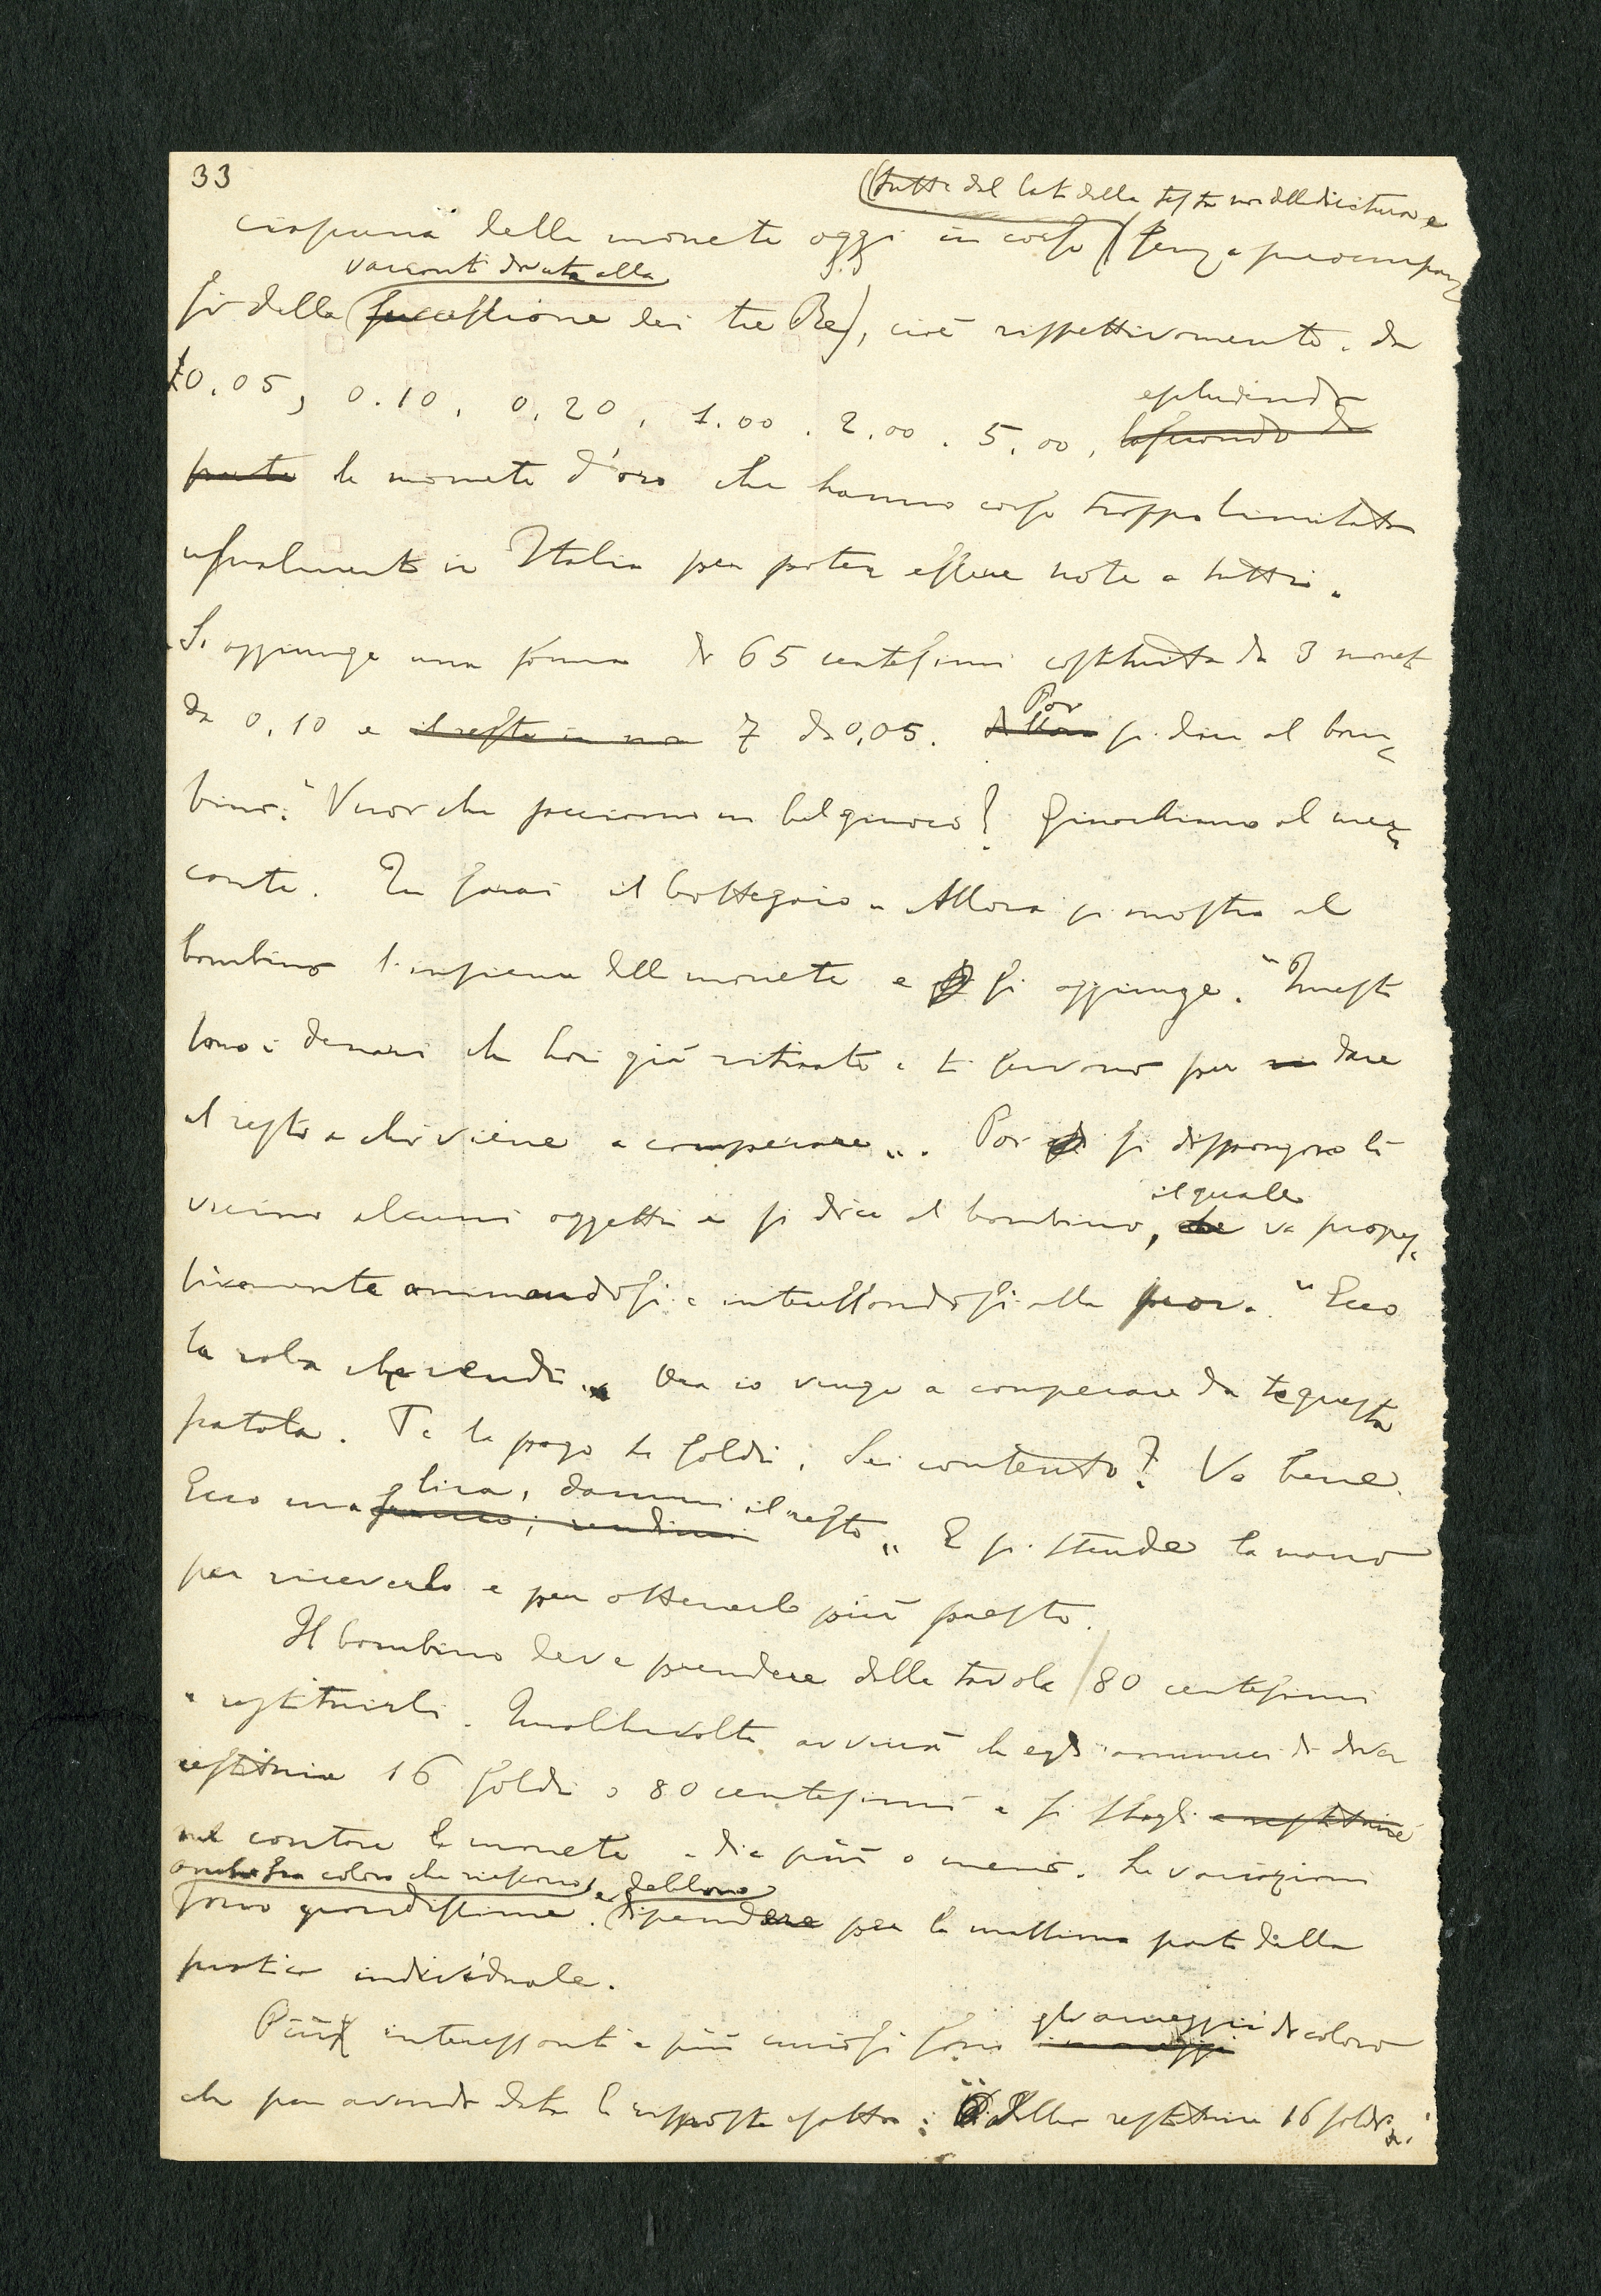 33
(tutte dal lato della testa non della dicitura e
ciascuna delle monete oggi in corso (senza preoccupar
varianti dovute alla
si della successione dei tre Re), cioè rispettivamente da
£0.05, 0.10, 0.20, 1.00. 2.00. 5.00,
escludendo
lasciando da
parte le monete d'oro che hanno corso troppo limitato
usualmente in Italia per poter essere note a tutti.
Si aggiunge una somma di 65 centesimi costituita da 3 monete
da 0,10 e il resto in 7 da 0,05. Poi si dice al bam
bino: "Vuoi che facciamo un bel giuoco? Giuochiamo al mer
cante. Tu sarai il bottegaio" Allora si mostra al
bambino l'insieme delle monete e si aggiunge: "Questi
sono i denari che hai già ritirato e ti servono per dare
il resto a chi viene a comperare". Poi si dispongono lì
il quale
vicino alcuni oggetti e si dice al bambino, che va progres
sivamente animandosi e interessandosi alla prova: "Ecco
la roba che vendi". Ora io vengo a comperare da te questa
scatola. Te la pago 4 soldi. Sei contento? Va bene.
lira, dammi il resto
Ecco una rendimi " E si stende la mano
per riceverlo e per ottenerlo più presto.
Il bambino deve prendere dalla tavola 80 centesimi
e restituirli. Qualche volta avverrà che egli annunci di dover
restituire 16 soldi o 80 centesimi e si sbagli e restituire
nel contare le monete e dia più o meno. Le variazioni
anche fra coloro che riescono, e debbono
sono grandissime. dipendere per la massima parte dalla
pratica individuale.
gli armeggii di coloro
Più interessanti e più curiosi sono i maneggi
che pur avendo data la risposta esatta: "Debbo restituire 16 soldi",